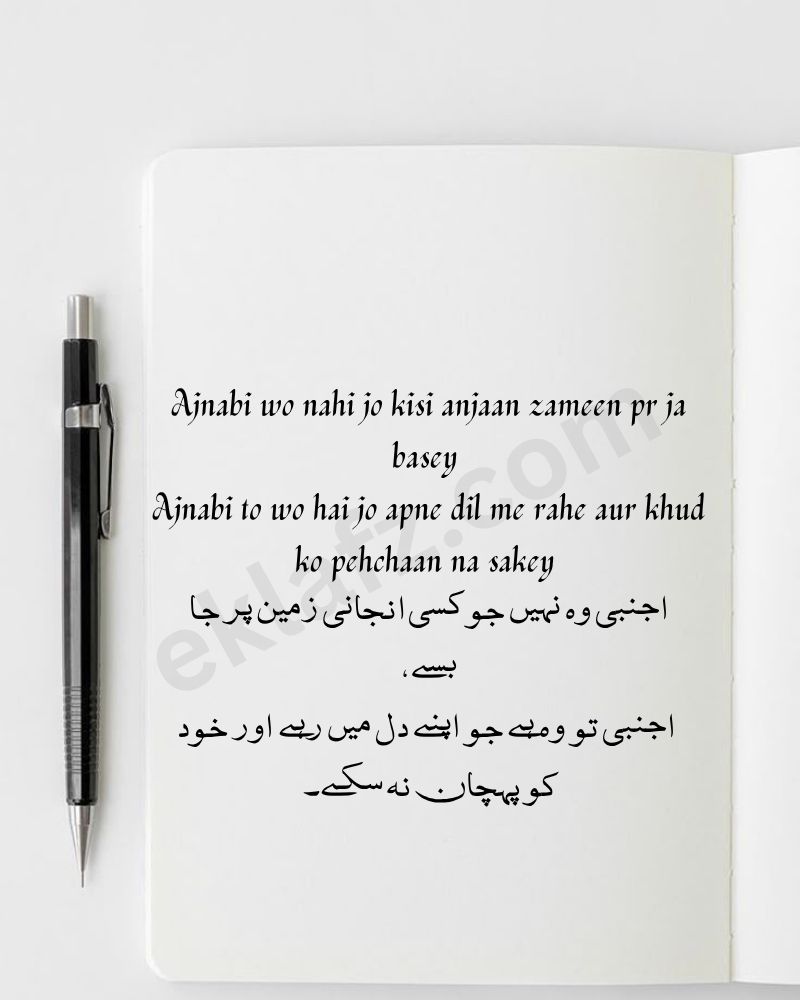 Ajnabi wo nahi jo kisi anjaan zameen pr ja
basey
Ajnabi to wo hai jo apne dil me rahe aur khud
ko pehchaan na sakey
اجنبی وہ نہیں جو کسی انجانی زمین پر جا
بسے،
اجنبی تو وہ ہے جو اپنے دل میں رہے اور خود
کو پہچان نہ سکے۔
eklafz.com